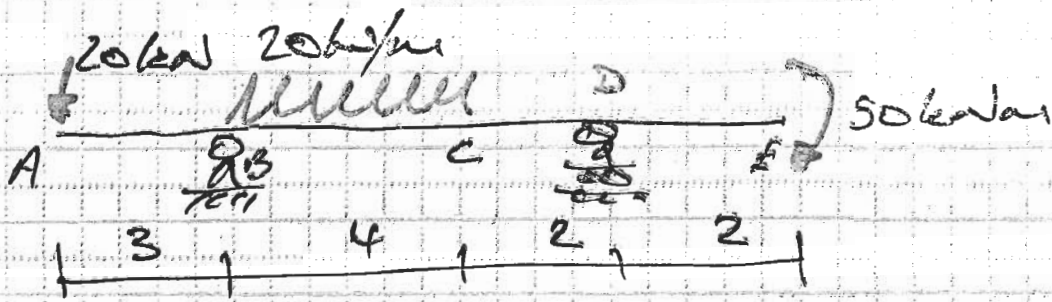 20kN 20kN/m
D
50kNm
A B C E
3 4 2 2